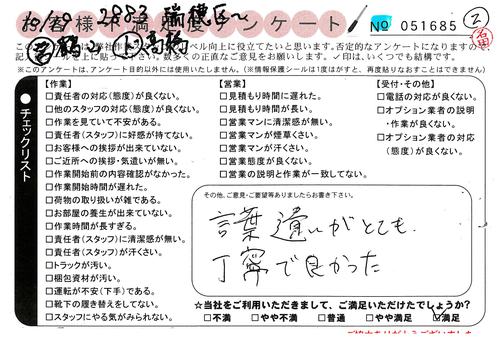 10/29 2883 瑞穂区～
お客様 満足度アンケート
№ 051685 ②
※このアンケートは、アンケート目的以外には使用いたしません。(※情報保護シールは1度はがすと、再度貼りなおすことはできません)
チェックリスト
【作業】
□責任者の対応(態度)が良くない。
□他のスタッフの対応(態度)が良くない。
□作業を見ていて不安がある。
□責任者(スタッフ)に好感が持てない。
□お客様への挨拶が出来ていない。
□ご近所への挨拶・気遣いが無い。
□作業開始前の内容確認がなかった。
□作業開始時間が遅れた。
□荷物の取り扱いが雑である。
□お部屋の養生が出来ていない。
□作業時間が長すぎる。
□責任者(スタッフ)に清潔感が無い。
□責任者(スタッフ)が汗くさい。
□トラックが汚い。
□梱包資材が汚い。
□運転が不安(下手)である。
□靴下の履き替えをしてない。
□スタッフにやる気がみられない。
【営業】
□見積もり時間に遅れた。
□見積もり時間が長い。
□営業マンに清潔感が無い。
□営業マンが煙草くさい。
□営業マンが汗くさい。
□営業態度が良くない。
□営業の説明と作業が一致してない。
【受付・その他】
□電話の対応が良くない。
□オプション業者の説明
・作業が良くない。
□オプション業者の対応
(態度)が良くない。
その他、ご意見・ご要望等ありましたらお書き下さい。
言葉遣いがとても
丁寧で良かった
☆当社をご利用いただきまして、ご満足いただけたでしょうか?
□不満 □やや不満 □普通 □やや満足 ☑満足